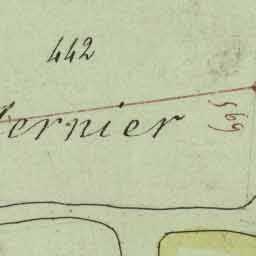 442
ernier
569